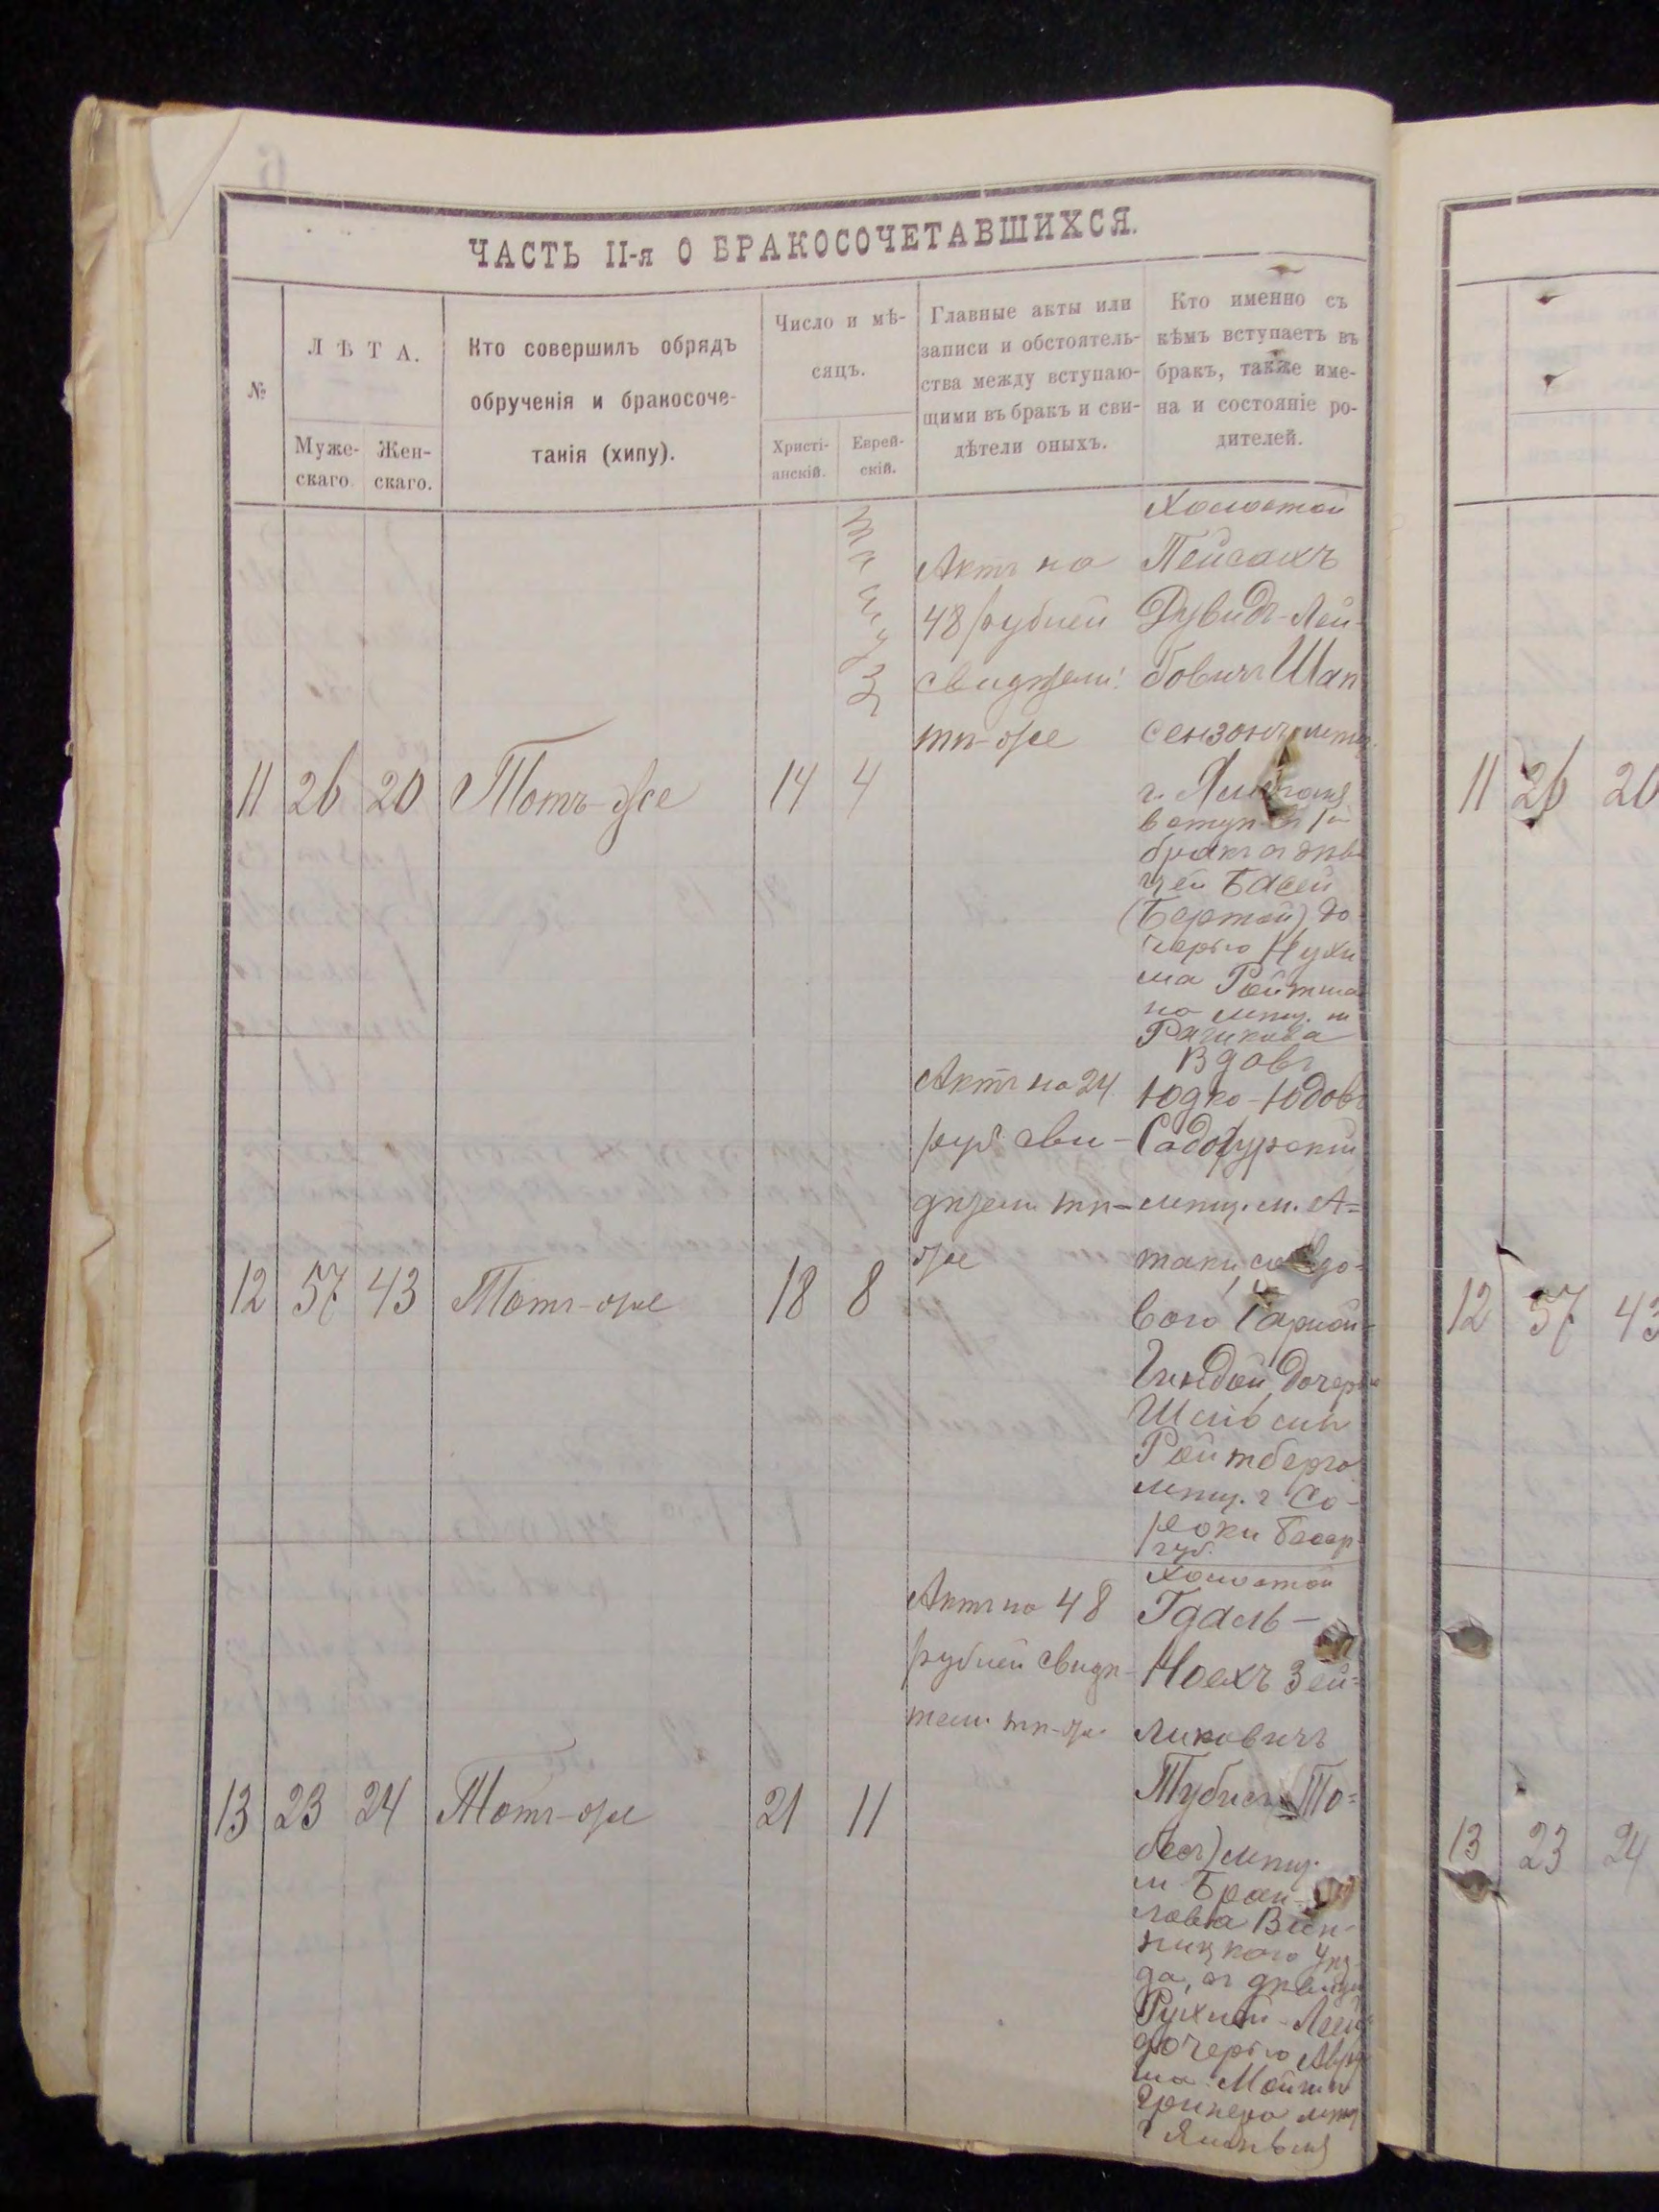 ЧАСТЬ II-я О БРАКОСОЧЕТАВШИХСЯ.
№
ЛѢТА.
Муже-
скаго.
Жен-
скаго.
Кто совершилъ обрядъ
обрученія и бракосоче-
танія (хипу).
Число и мѣ-
сяцъ.
Христі-
анскій.
Еврей-
скій.
Главные акты или
записи и обстоятель-
ства между вступаю-
щими въ бракъ и сви-
дѣтели оныхъ.
Кто именно съ
кѣмъ вступаетъ въ
бракъ, также име-
на и состояніе ро-
дителей.
11 26 20 Тотъ-же 14 4
Актъ на
48 рублей
свидѣтели
тѣ-же
Холостой
Пейсахъ
Дувидъ-Лей-
бовичъ Шап
сензонъ мѣщ.
г.
вступ. въ 1й
бракъ съ дѣви
цей Басей
(Бертой) до-
черью Нухи
ма Ройтма
на мѣщ. м
Рашкова
12 57 43 Тотъ-же 18 8
Актъ на 24
руб. сви-
дѣтели тѣ-
же
Вдовъ
Юдко-Юдовъ
мѣщ. м. А=
таки, со вдо-
вого
Гиндой, дочерью
Ройтберга
мѣщ. г. Со-
роки Бессар.
губ.
13 23 24 Тотъ-же 21 11
Актъ на 48
рублей свидѣ-
тели тѣ-же
Холостой
Гдаль-
Ноехъ Зей=
ликовичъ
(То=
бесъ) мѣщ.
м. Браи-
лова Вин-
ницкаго уѣз
да, съ дѣвицей
Рухлей-Леей
дочерью Авру
ма
мѣщ
г.
11 26 20
12 57 43
13 23 24